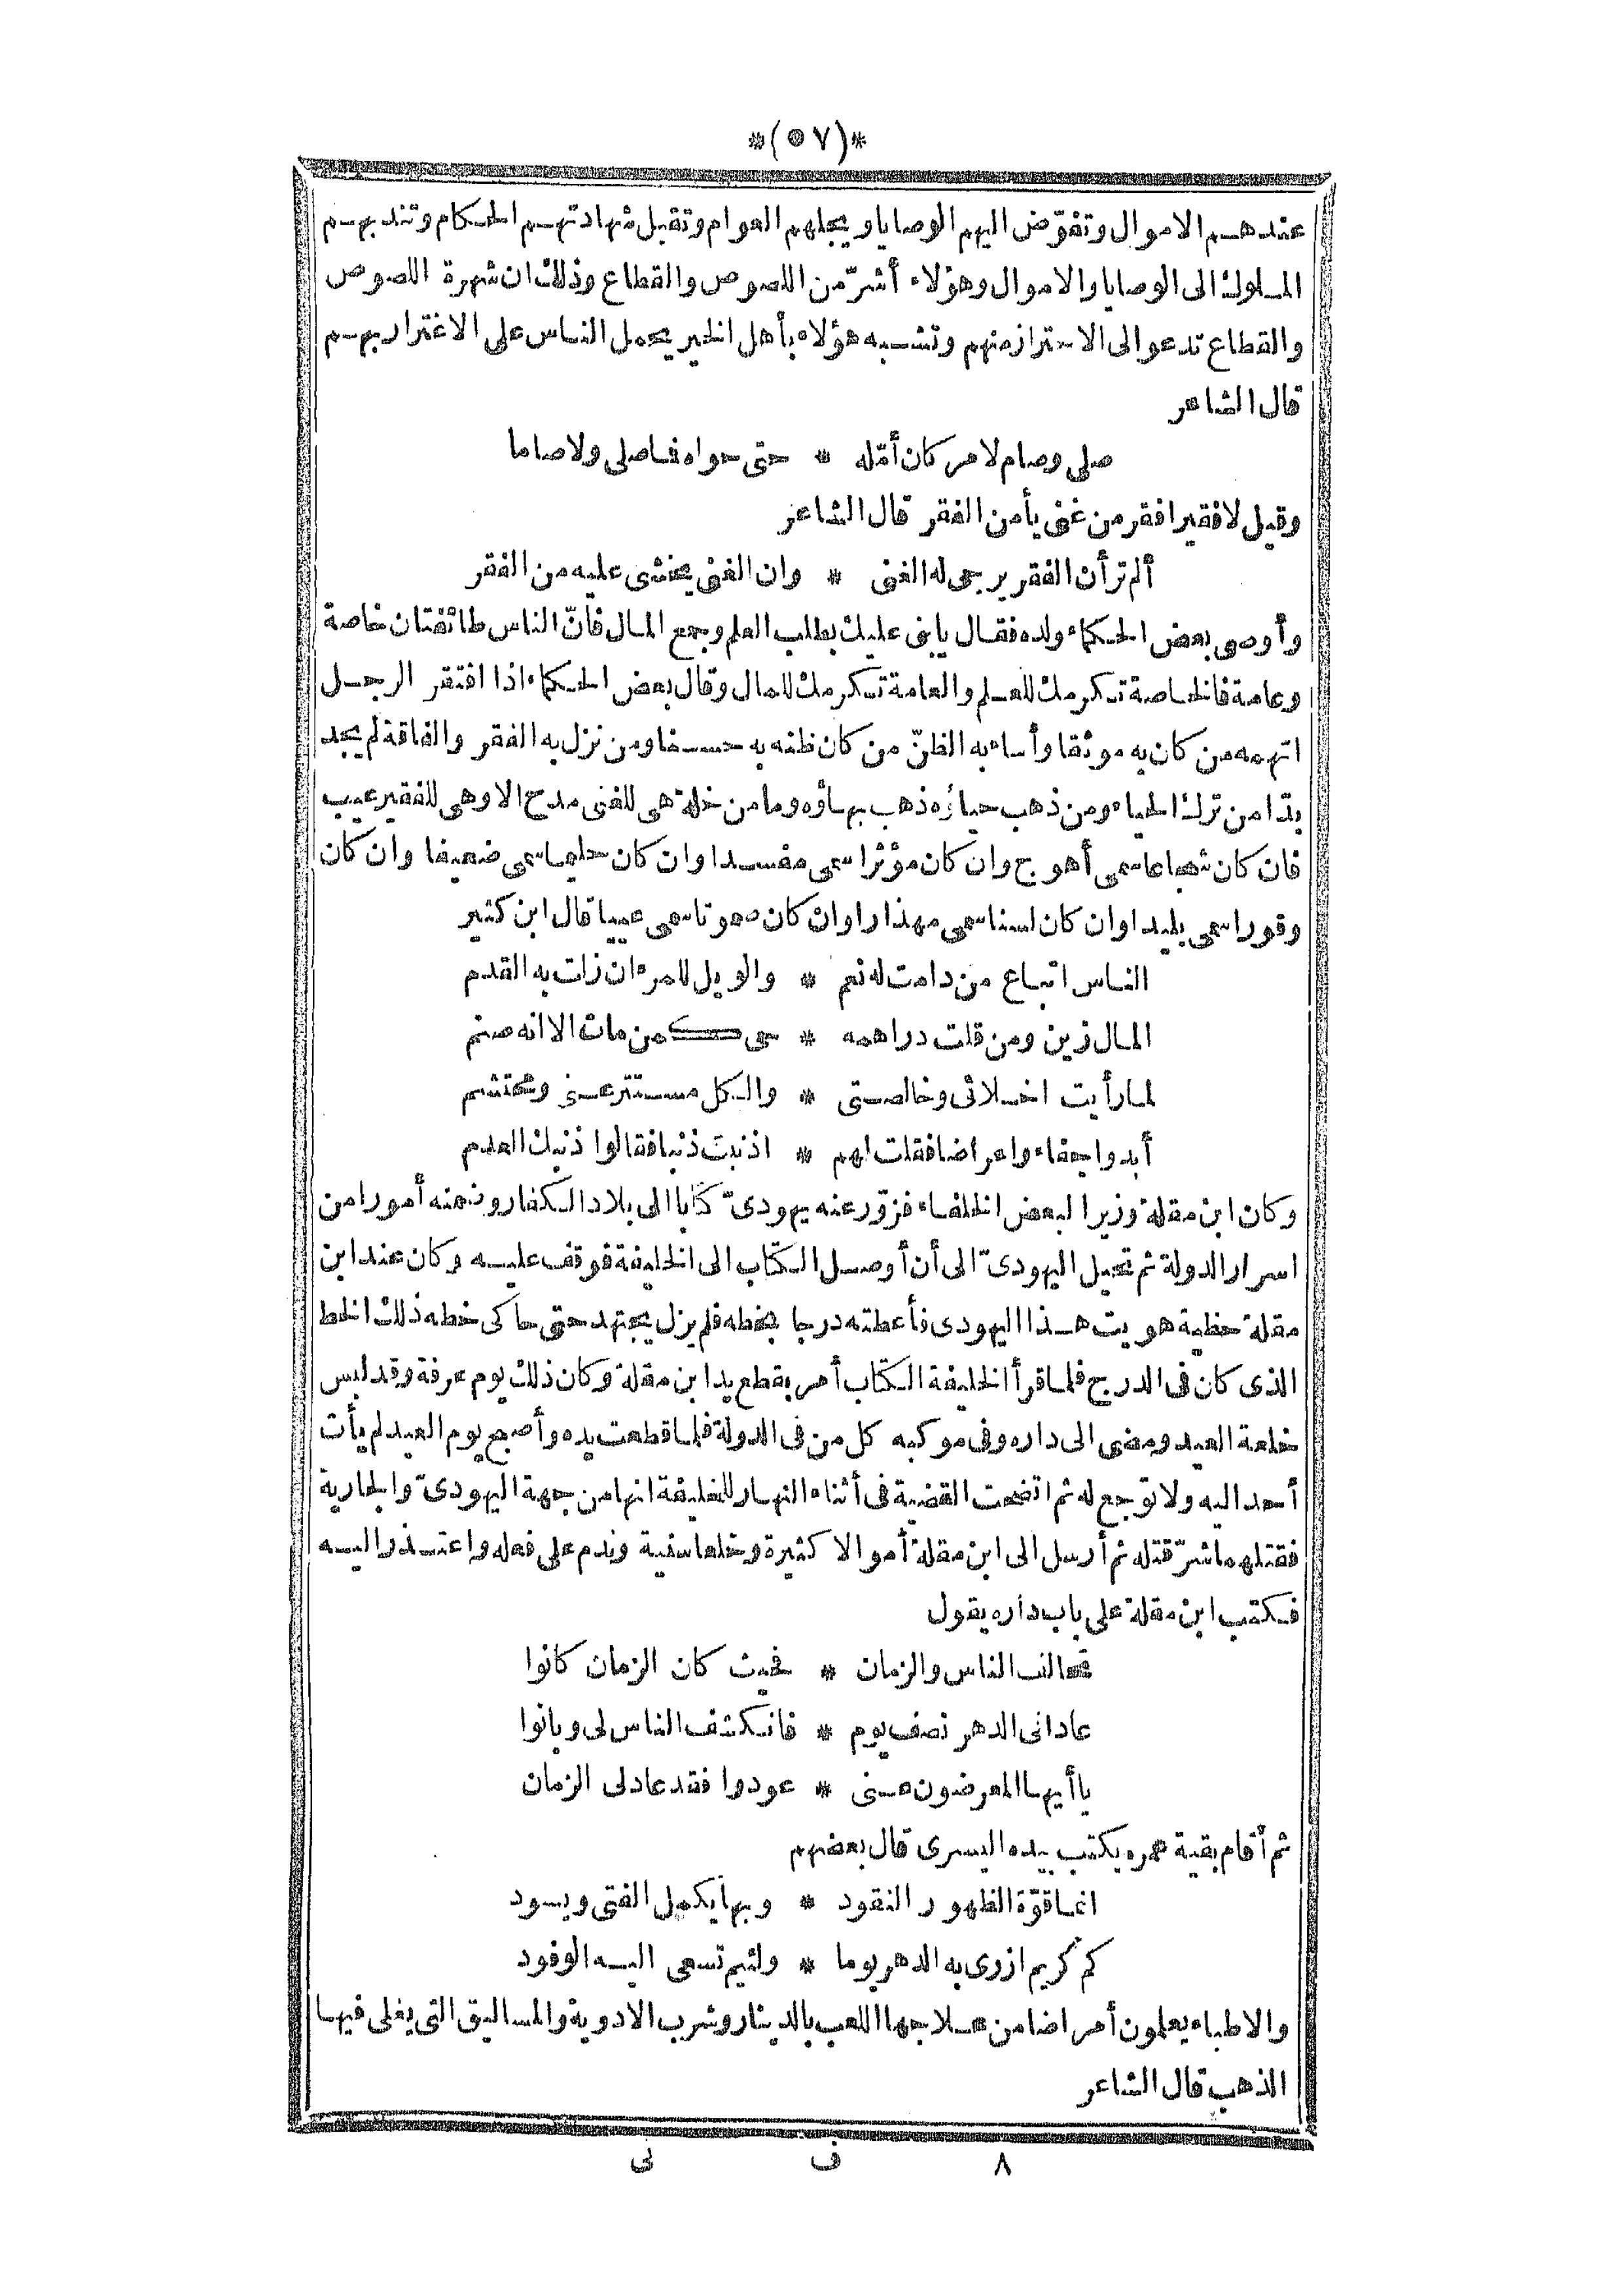 *(٥٧)*
عندهم الاموال وتفوّض اليهم الوصايا ويجلهم العوام وتقبل شهادتهم الحكام وتندبهم
الملوك الى الوصايا والاموال وهؤلاء أشرّ من اللصوص والقطاع وذلك ان شهرة اللصوص
والقطاع تدعو الى الاحتراز منهم وتشبه هؤلاء بأهل الخير يحمل الناس على الاغترار بهم
قال الشاعر
صلى وصام لامر كان أمّله * حتى حواه فما صلى ولا صاما
وقيل لا فقير افقر من غنى يأمن الفقر قال الشاعر
ألم تر أن الفقر يرجى له الغنى * وان الغنى يخشى عليه من الفقر
وأوصى بعض الحكماء ولده فقال يا بنى عليك بطلب العلم وجمع المال فانّ الناس طائفتان خاصة
وعامة فالخاصة تكرمك للعلم والعامة تكرمك للمال وقال بعض الحكماء اذا افتقر الرجل
اتهمه من كان به موثقا وأساء به الظنّ من كان ظنه به حسنا ومن نزل به الفقر والفاقة لم يجد
بدّا من ترك الحياء ومن ذهب حياؤه ذهب بهاؤه وما من خلة هى للغنى مدح الا وهى للفقير عيب
فان كان شجاعا سمى أهوج وان كان مؤثرا سمى مفسدا وان كان حليما سمى ضعيفا وان كان
وقورا سمى بليدا وان كان لسنا سمى مهذارا وان كان صموتا سمى عييا قال ابن كثير
الناس اتباع من دامت له نعم * والويل للمرء ان زلت به القدم
المال زين ومن قلت دراهمه * حى كمن مات الا انه صنم
لما رأيت اخلائى وخالصتى * والكل مستتر عنى ومحتشم
أبدوا جفاء واعراضا فقلت لهم * اذنبت ذنبا فقالوا ذنبك العدم
وكان ابن مقلة وزيرا لبعض الخلفاء فزوّر عنه يهودىّ كتابا الى بلاد الكفار وضمنه أمورا من
اسرار الدولة ثم تحيل اليهودىّ الى أن أوصل الكتاب الى الخليفة فوقف عليه وكان عند ابن
مقلة حظية هويت هذا اليهودى فأعطته درجا بخطه فلم يزل يجتهد حتى حاكى خطه ذلك الخط
الذى كان فى الدرج فلما قرأ الخليفة الكتاب أمر بقطع يد ابن مقلة وكان ذلك يوم عرفة وقد لبس
خلعة العيد ومضى الى داره وفى موكبه كل من فى الدولة فلما قطعت يده وأصبح يوم العيد لم يأت
أحد اليه ولا توجع له ثم اتضحت القضية فى أثناء النهار للخليفة انها من جهة اليهودىّ والجارية
فقتلهما شرّ قتله ثم أرسل الى ابن مقلة أموالا كثيرة وخلعا سنية وندم على فعله واعتذر اليه
فكتب ابن مقلة على باب داره يقول
تحالف الناس والزمان * فحيث كان الزمان كانوا
عادانى الدهر نصف يوم * فانكشف الناس لى وبانوا
يا أيها المعرضون عنى * عودوا فقد عاد لى الزمان
ثم أقام بقية عمره يكتب بيده اليسرى قال بعضهم
انما قوّة الظهور النقود * وبها يكمل الفتى ويسود
كم كريم ازرى به الدهر يوما * ولئيم تسعى اليه الوفود
والاطباء يعلمون أمراضا من علاجها اللعب بالدينار وشرب الادوية والمساليق التى يغلى فيها
الذهب قال الشاعر
٨ ف نى